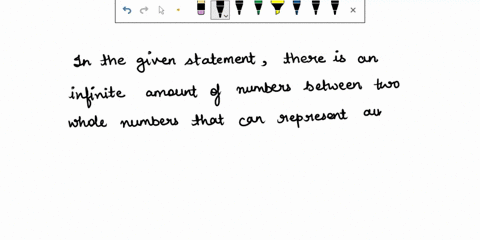 In the given statement, there is an
infinite amount of numbers between two
whole numbers that can represent